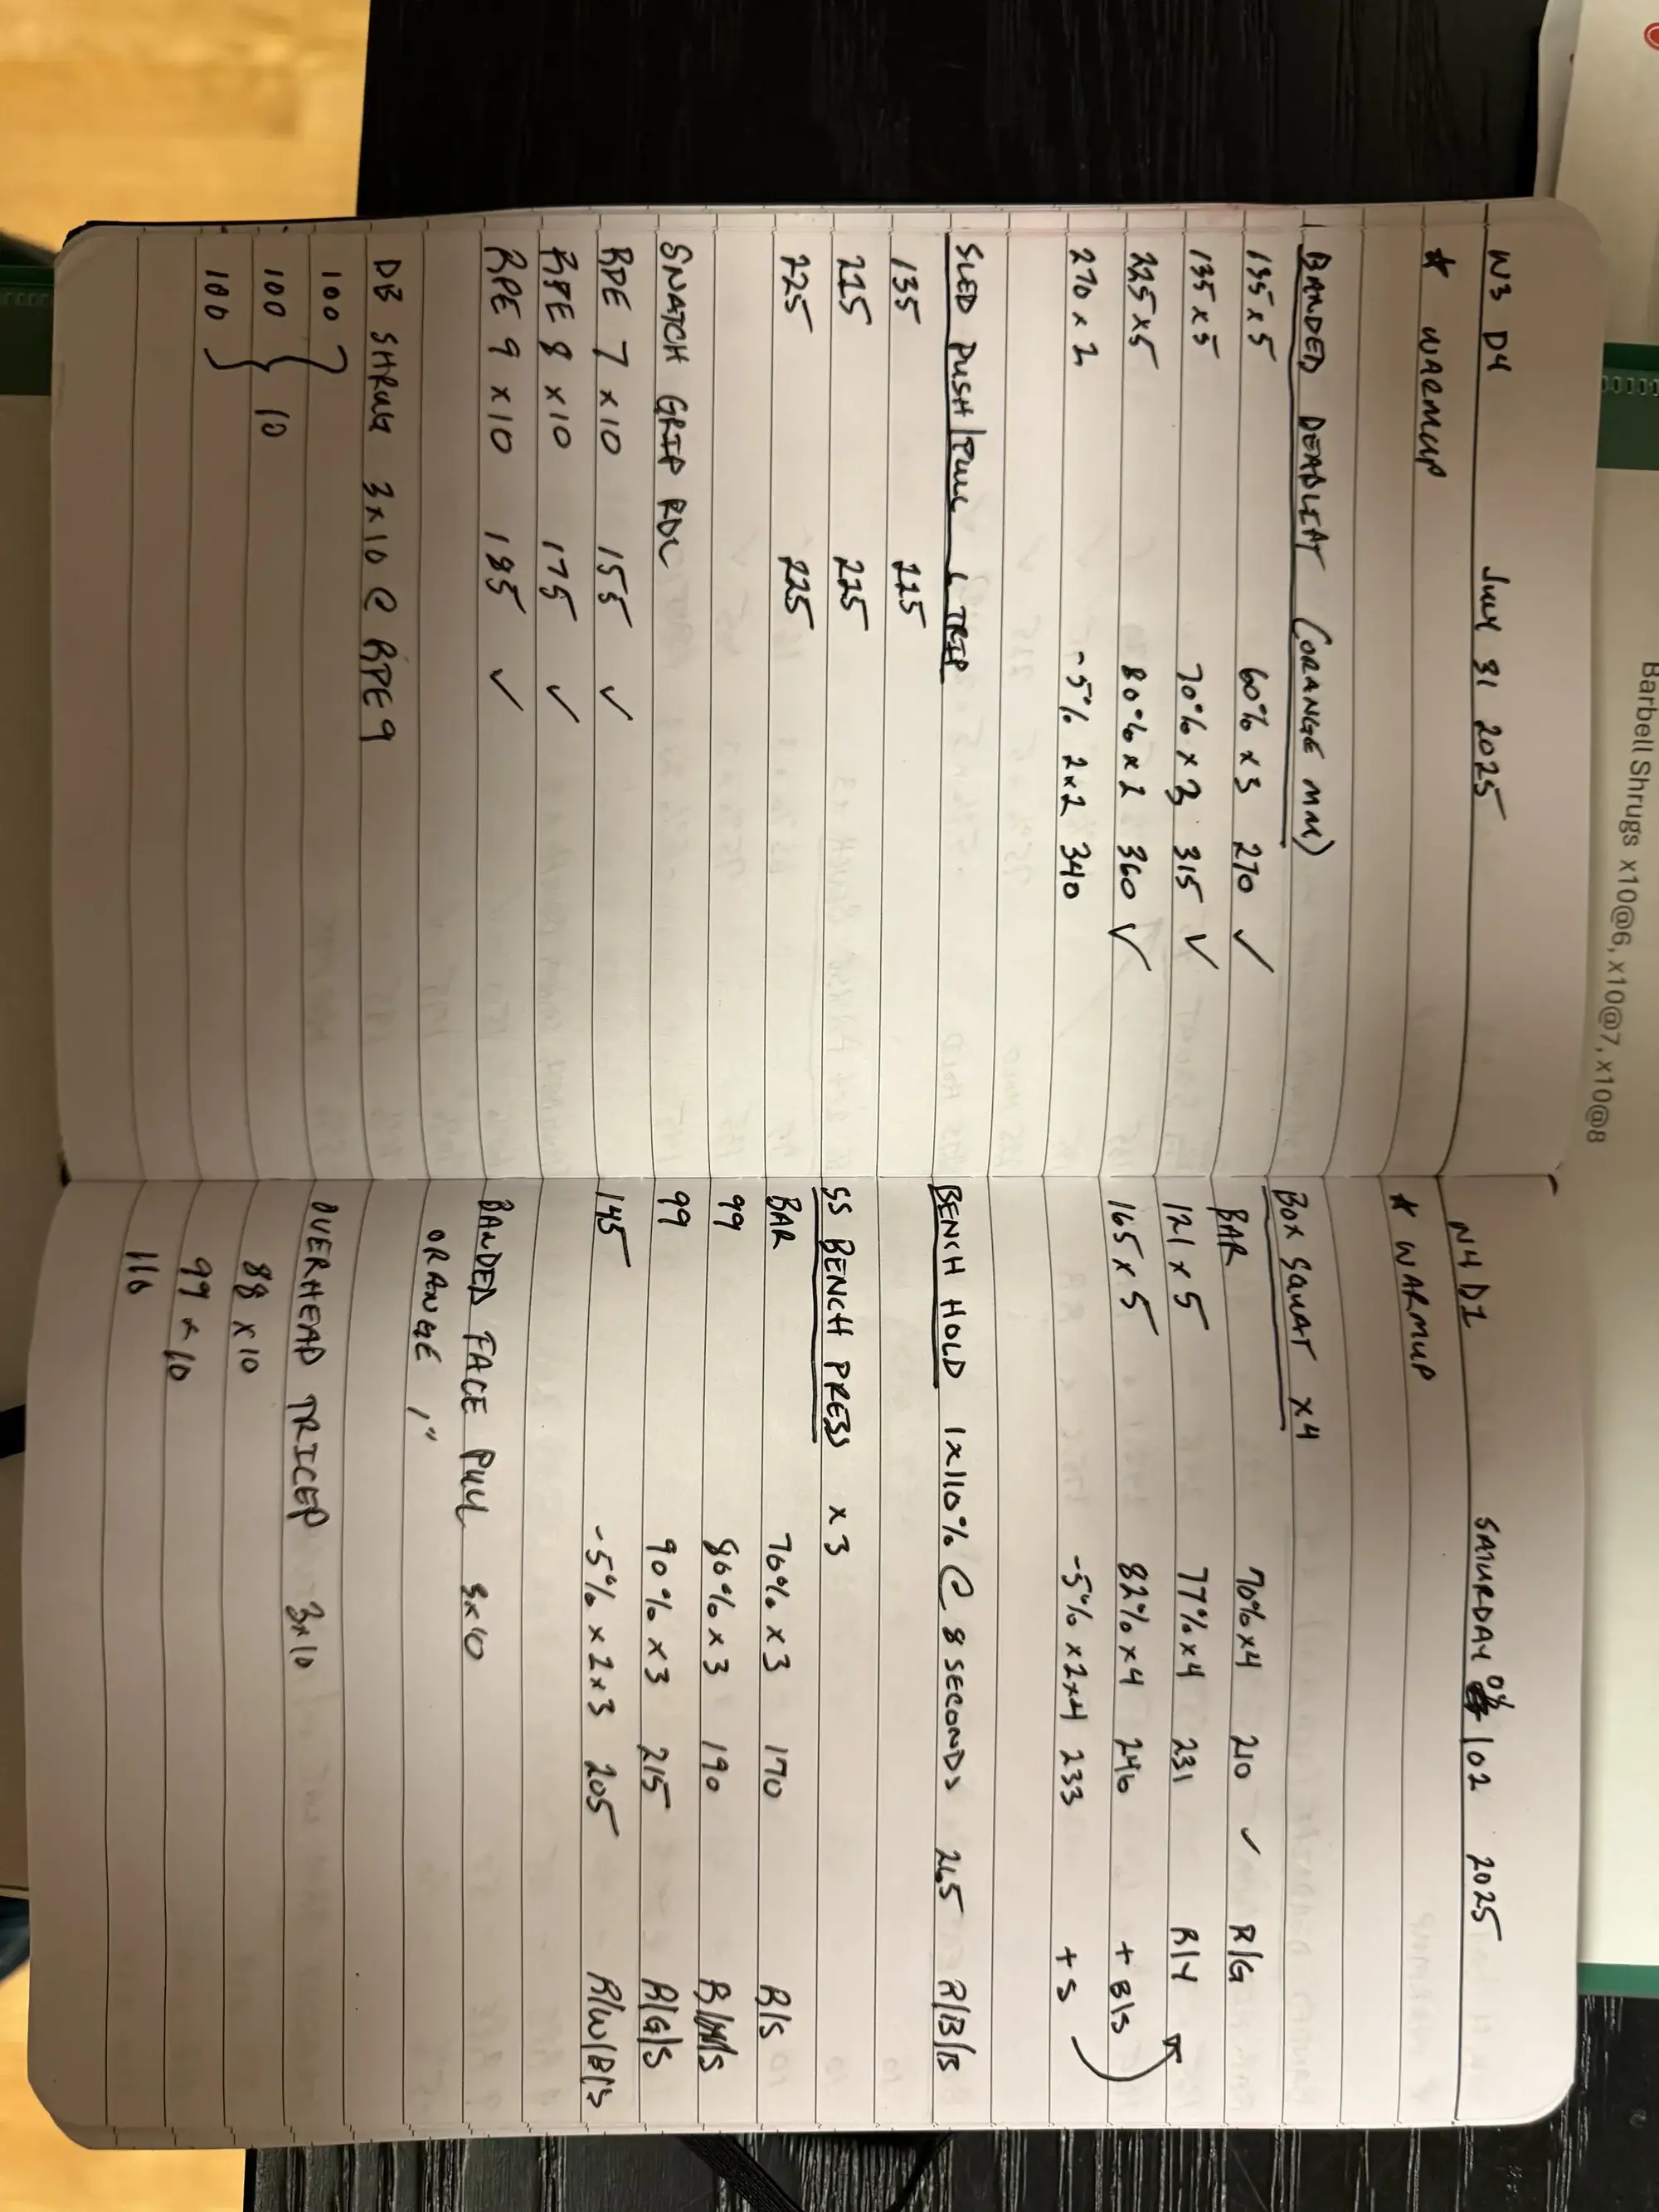 Barbell Shrugs x10@6, x10@7, x10@8
W3 D4 July 31 2025
* WARMUP
BANDED DEADLIFT (ORANGE MM)
135 x 5 60% x 3 270 ✓
135 x 5 70% x 3 315 ✓
225 x 5 80% x 2 360 ✓
270 x 2 -5% 2x2 340
SLED PUSH/PULL 6 TRIP
135 225
225 225
225 225
SNATCH GRIP RDL
RPE 7 x 10 155 ✓
RPE 8 x 10 175 ✓
RPE 9 x 10 185 ✓
DB SHRUG 3x10 @ RPE9
100
100 } 10
100
W4 D1 SATURDAY 08/02 2025
* WARMUP
BOX SQUAT x4
BAR 70% x4 210 ✓ R/G
121 x 5 77% x4 231 R/Y
165 x 5 82% x4 246 + B/S
-5% x 2x4 233 + S
BENCH HOLD 1x110% @ 8 SECONDS 265 R/B/B
SS BENCH PRESS x 3
BAR 70% x 3 170 R/S
99 80% x 3 190 R/S
99 90% x 3 215 R/G/S
145 -5% x 2x3 205 R/W/B/S
BANDED FACE PULL 3x10
ORANGE, "
OVERHEAD TRICEP 3x10
88 x 10
99 x 10
110